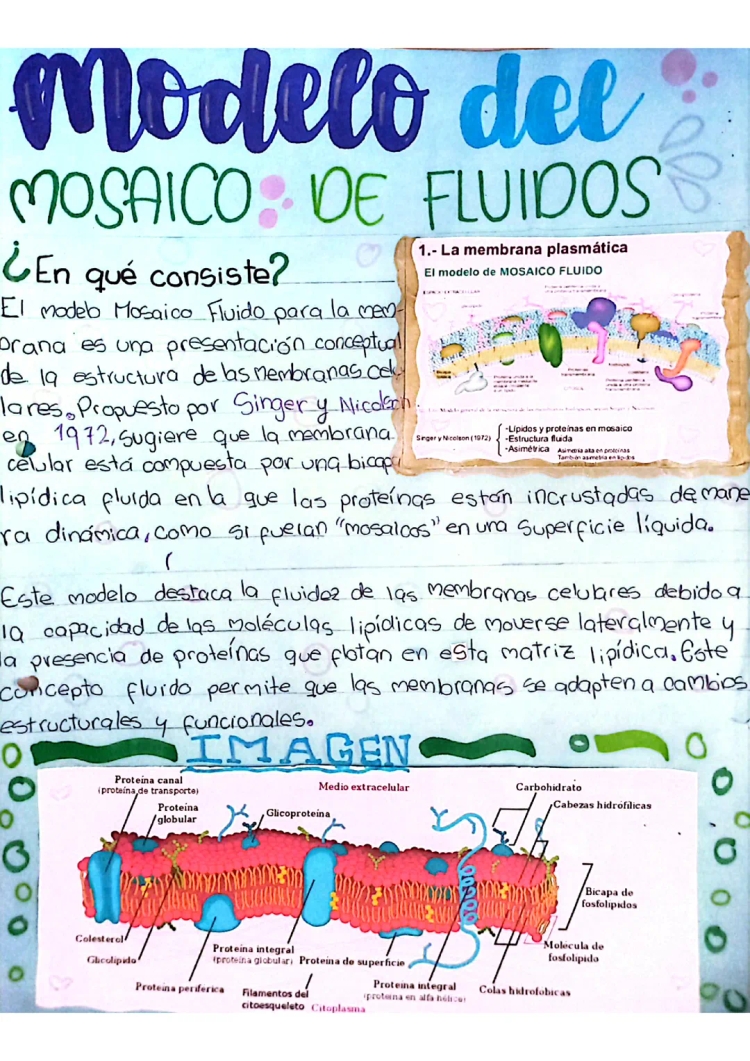 Modelo del
MOSAICO DE FLUIDOS
¿En qué consiste?
El modelo Mosaico Fluido para la mem-
brana es una presentación conceptual
de la estructura de las membranas celu
lares. Propuesto por Singer y Nicolson
en 1972, sugiere que la membrana
celular está compuesta por una bicap
lipídica fluida en la que las proteínas están incrustadas de mane
ra dinámica, como si fueran "mosaicos" en una superficie líquida.
Este modelo destaca la fluidez de las membranas celulares debido a
la capacidad de las moléculas lipídicas de moverse lateralmente y
la presencia de proteínas que flotan en esta matriz lipídica. Este
concepto fluido permite que las membranas se adapten a cambios
estructurales y funcionales.
1.- La membrana plasmática
El modelo de MOSAICO FLUIDO
Singer y Nicolson (1972)
-Lípidos y proteínas en mosaico
-Estructura fluida
-Asimétrica
Asimetría alta en proteínas
También asimetría en lípidos
IMAGEN
Proteína canal
(proteína de transporte)
Proteína
globular
Glicoproteína
Medio extracelular
Carbohidrato
Cabezas hidrófílicas
Bicapa de
fosfolípidos
Molecula de
fosfolípido
Colesterol
Glicolípido
Proteína periférica
Proteína integral
(proteína globular)
Filamentos del
citoesqueleto
Citoplasma
Proteína de superficie
Proteína integral
(proteína en alfa hélice)
Colas hidrofóbicas